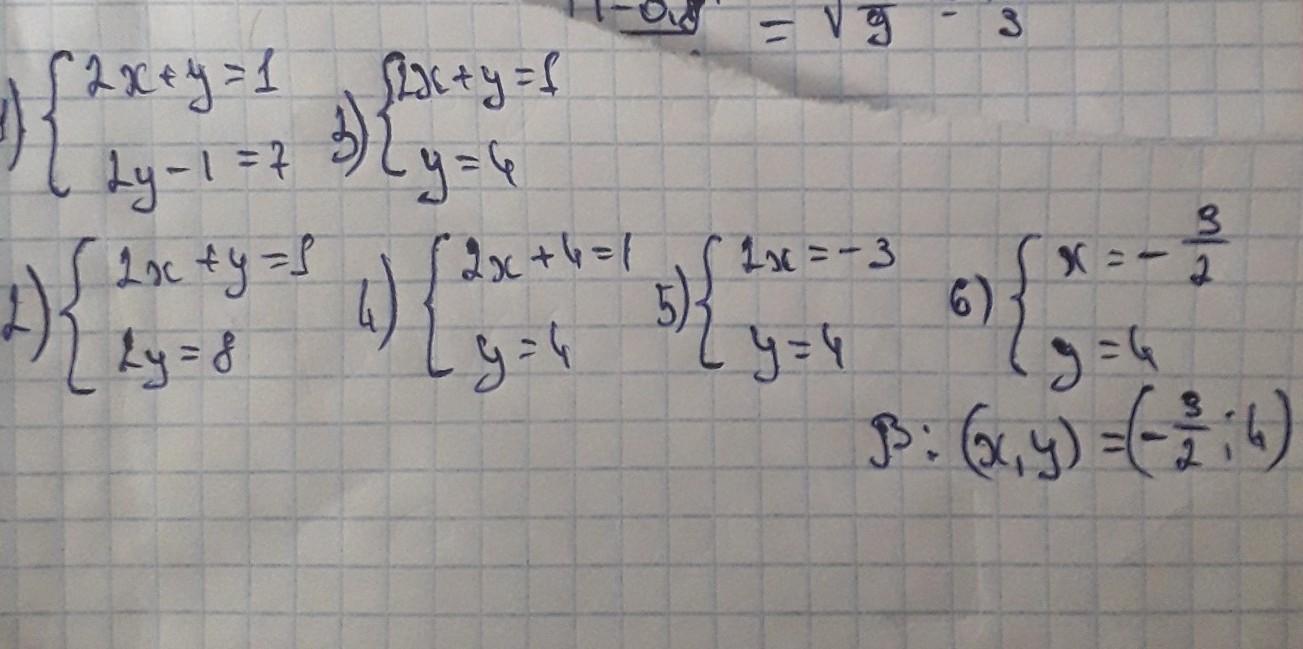 = √9 - 3
1) { 2x+y=1
2y-1=7
3) { 2x+y=1
y=4
2) { 2x+y=1
2y=8
4) { 2x+4=1
y=4
5) { 2x=-3
y=4
6) { x=-3/2
y=4
В: (x,y)=(-3/2;4)